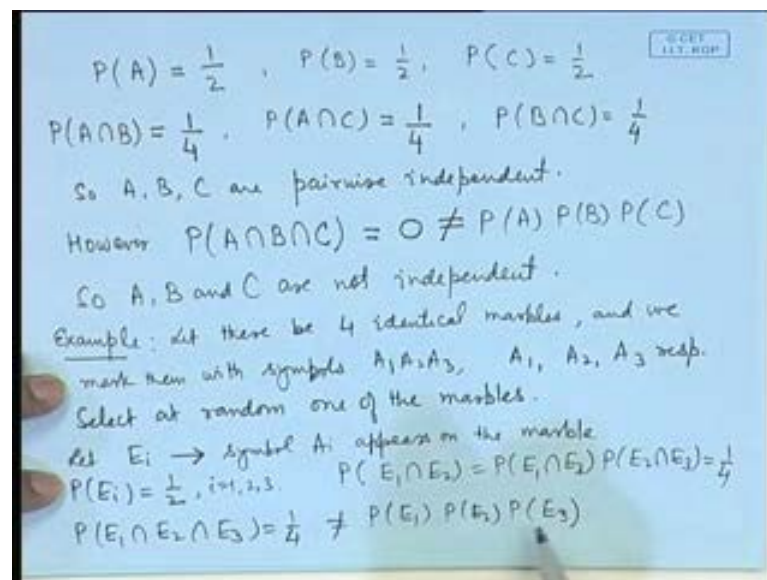 © CET
I.I.T. KGP
P(A) = 1/2 , P(B) = 1/2, P(C) = 1/2
P(A∩B) = 1/4 , P(A∩C) = 1/4 , P(B∩C) = 1/4
So A, B, C are pairwise independent.
However P(A∩B∩C) = 0 ≠ P(A) P(B) P(C)
So A, B and C are not independent.
Example: Let there be 4 identical marbles, and we
mark them with symbols A₁A₂A₃, A₁, A₂, A₃ resp.
Select at random one of the marbles.
Let Eᵢ → symbol Aᵢ appears on the marble
P(Eᵢ) = 1/2, i=1,2,3. P(E₁∩E₂) = P(E₁∩E₃) P(E₂∩E₃) = 1/4
P(E₁∩E₂∩E₃) = 1/4 ≠ P(E₁) P(E₂) P(E₃)